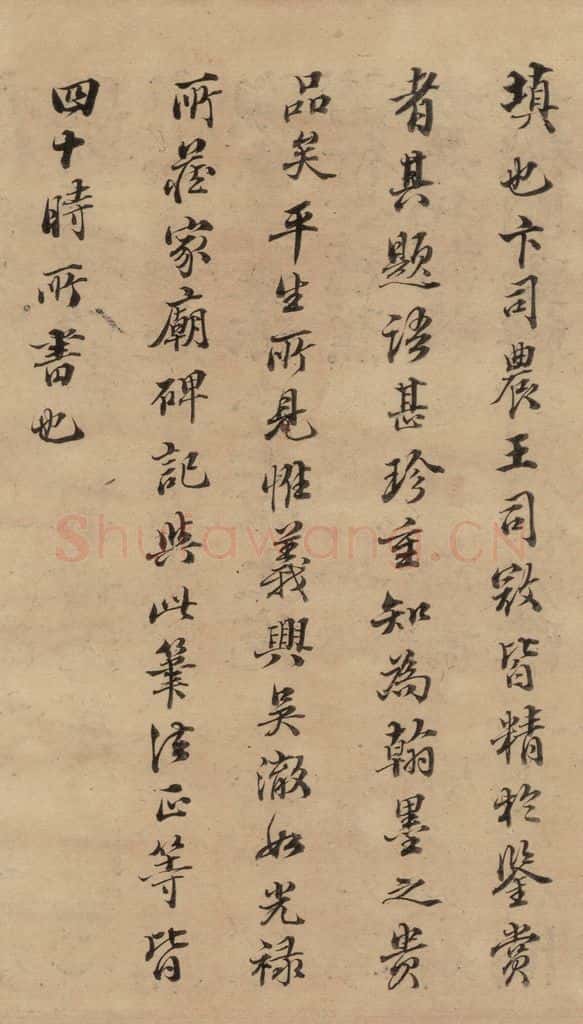 填也卞司農王司寇皆精於鑒賞
者其題語甚珍重知為翰墨之貴
品矣平生所見惟義興吳澈如光禄
所藏家廟碑記與此筆法正等皆
四十時所書也
shufawang.CN